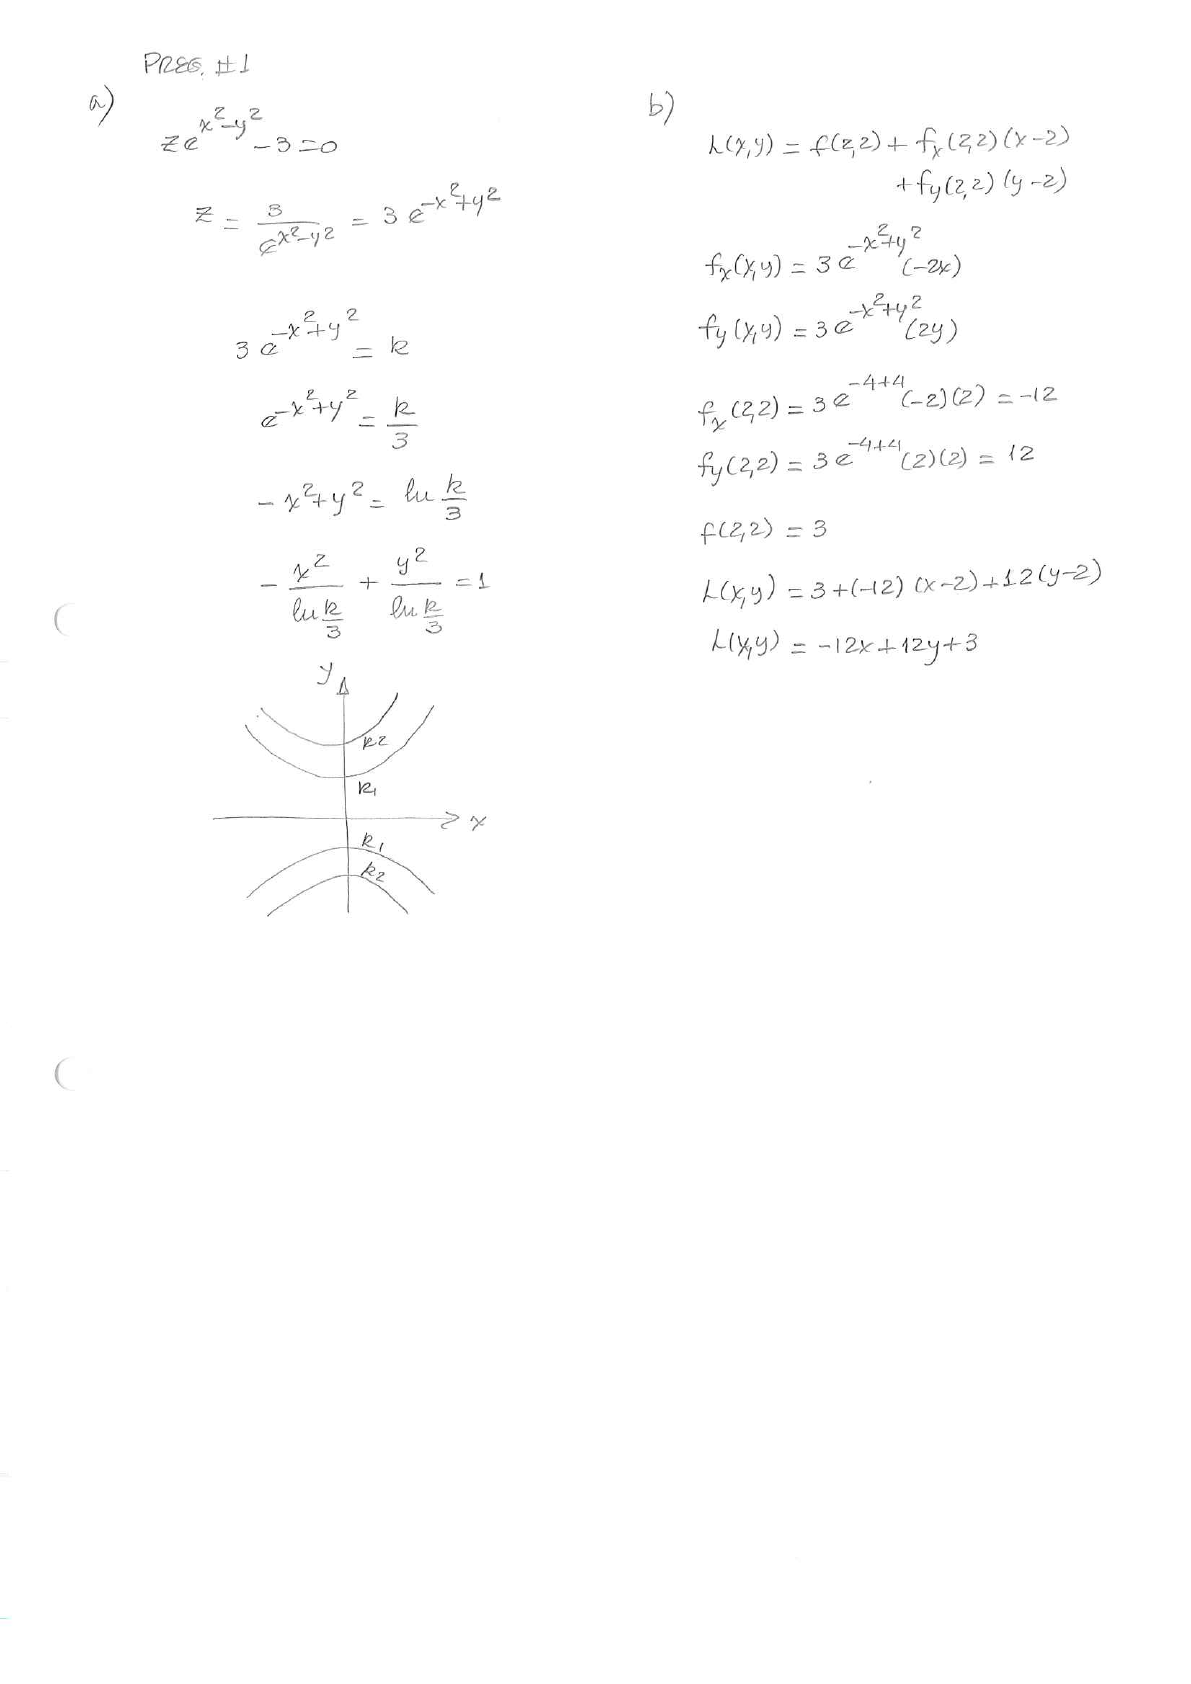 PREG. #1
a)
ze^{x^2-y^2} - 3 = 0
z = \frac{3}{e^{x^2-y^2}} = 3e^{-x^2+y^2}
3e^{-x^2+y^2} = k
e^{-x^2+y^2} = \frac{k}{3}
-x^2+y^2 = ln \frac{k}{3}
-\frac{x^2}{ln \frac{k}{3}} + \frac{y^2}{ln \frac{k}{3}} = 1
y
k2
k1
x
k1
k2
b)
L(x,y) = f(2,2) + f_x(2,2)(x-2)
+ f_y(2,2)(y-2)
f_x(x,y) = 3e^{-x^2+y^2}(-2x)
f_y(x,y) = 3e^{-x^2+y^2}(2y)
f_x(2,2) = 3e^{-4+4}(-2)(2) = -12
f_y(2,2) = 3e^{-4+4}(2)(2) = 12
f(2,2) = 3
L(x,y) = 3+(-12)(x-2)+12(y-2)
L(x,y) = -12x+12y+3